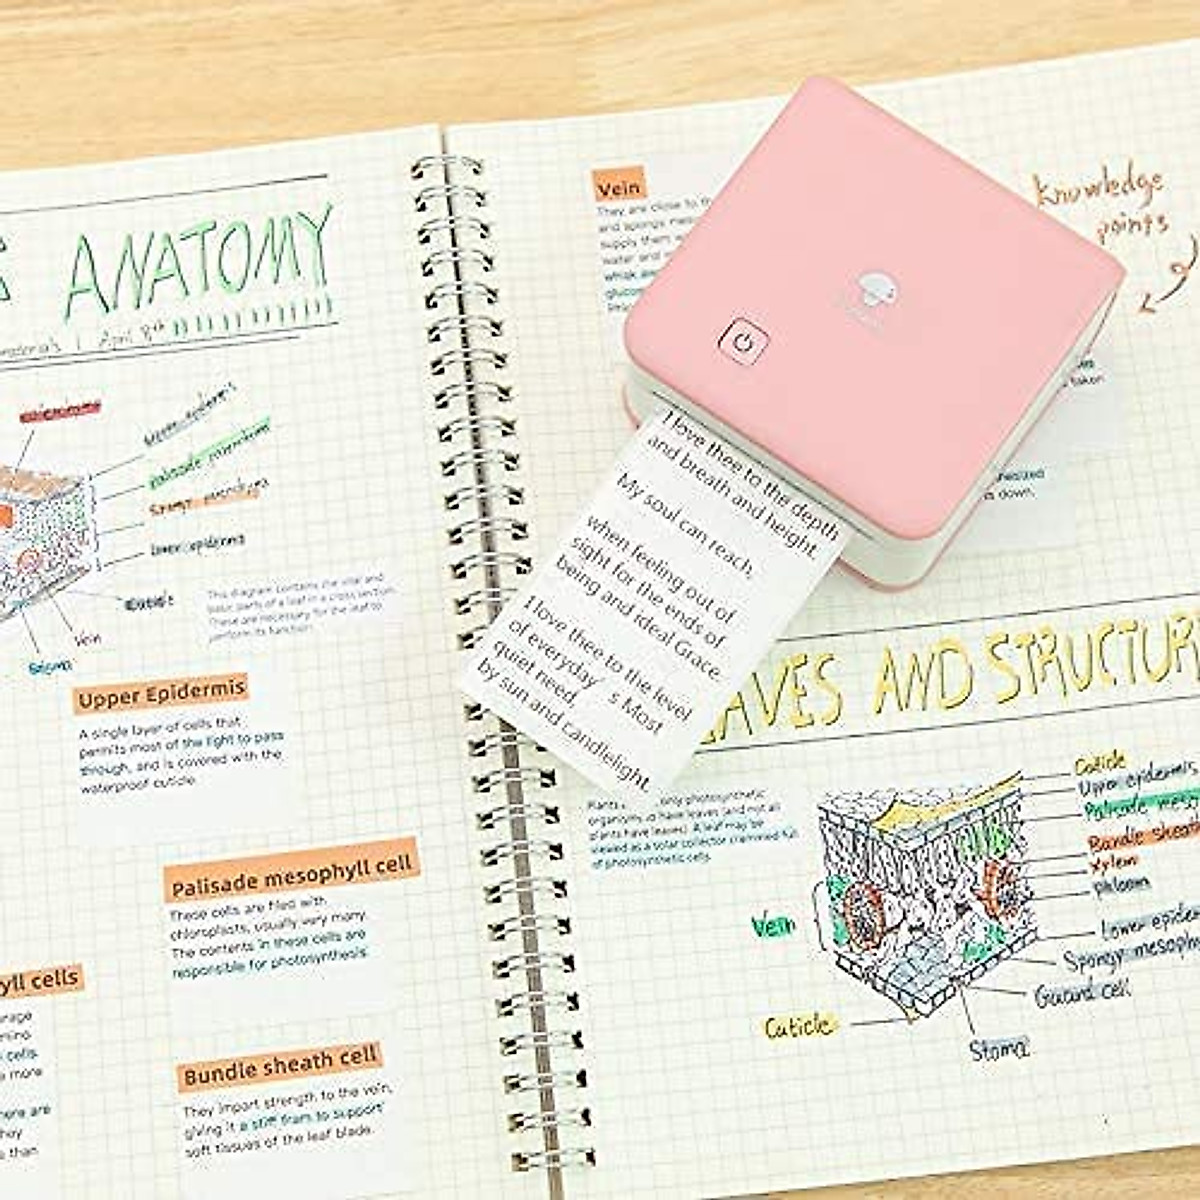 ANATOMY
April 8th
Upper epidermis
palisade parenchyma
lower epidermis
Cuticle
Vein
Stoma
This diagram contains the vital and
basic parts of a leaf in a cross section.
These are necessary for the leaf to
perform its function.
Upper Epidermis
A single layer of cells that
permits most of the light to pass
through, and is covered with the
waterproof cuticle.
Palisade mesophyll cell
These cells are filed with
chloroplasts, usually very many.
The contents in these cells are
responsible for photosynthesis.
yll cells
cells
more
here are
than
Bundle sheath cell
They import strength to the vein,
giving it a stiff fram to support
soft tissues of the leaf blade.
Vein
They are close to
and spongy mes
supply them
water and
Knowledge
points
taken
down.
I love thee to the depth
and breath and height
My soul can reach,
when feeling out of
sight for the ends of
being and ideal Grace.
I love thee to the level
of everyday’s Most
quiet need,
by sun and candlelight
EAVES AND STRUCTUR
Plants only photosynthetic
organisms to have leaves (and not all
plants have leaves). A leaf may be
viewed as a solar collector crammed full
of photosynthetic cells.
Cuticle
Upper epidermis
Palisade meso
Bundle sheat
Xylem
phloem
Vein
Lower epider
Spongy mesoph
Guard cell
Cuticle
Stoma